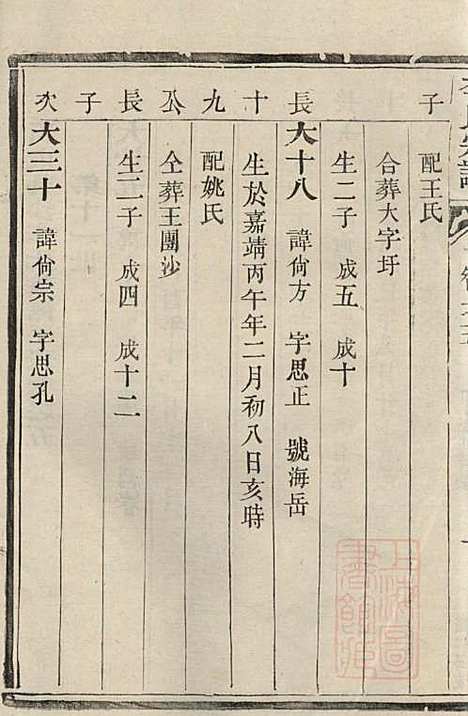 子
配王氏
合葬大字圩
生二子 成五 成十
長 大十八 諱尙方 字思正 號海岳
十 生於嘉靖丙午年二月初八日亥時
九 配姚氏
公 仝葬王團沙
長 生二子 成四 成十二
子
次 大三十 諱尙宗 字思孔
上海圖
書館藏